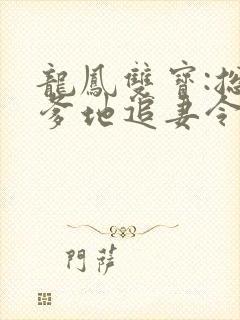 龍鳳雙寶:
爹地追妻令
門薩